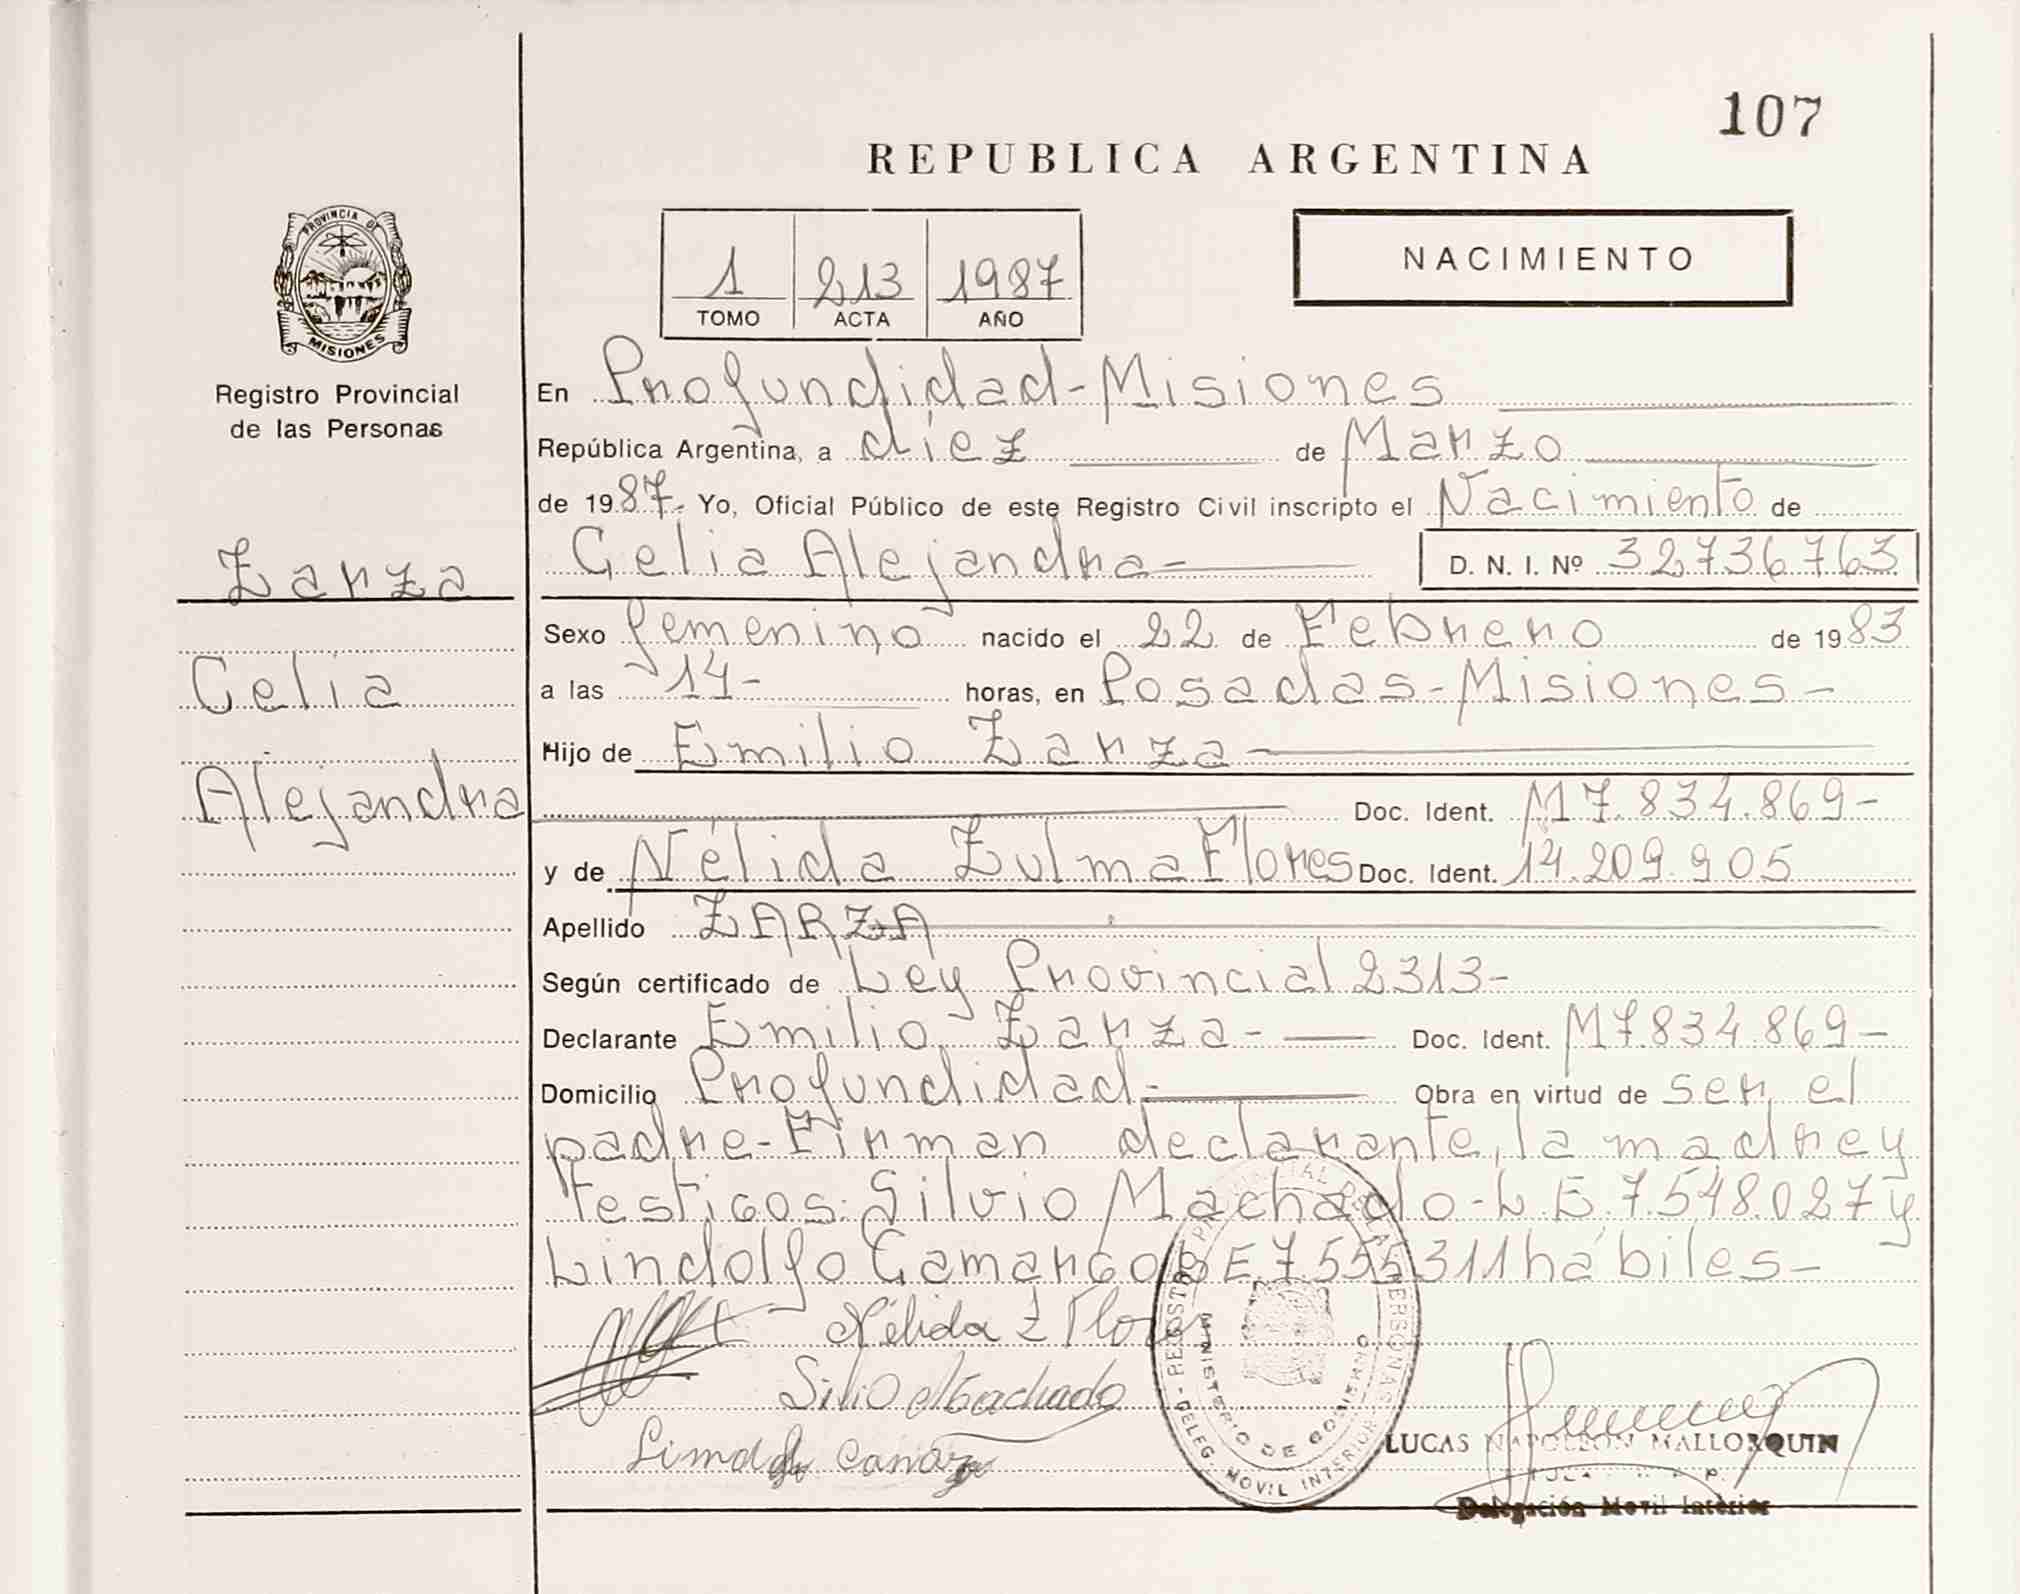 107
REPUBLICA ARGENTINA
PROVINCIA DE
MISIONES
Registro Provincial
de las Personas
1 213 1987
TOMO ACTA AÑO
NACIMIENTO
En Profundidad-Misiones
República Argentina, a diez de Marzo
de 1987- Yo, Oficial Público de este Registro Civil inscripto el Nacimiento de
Zarza
Celia Alejandra- D. N. I. Nº 32736763
Sexo femenino nacido el 22 de Febrero de 1983
Celia
a las 14- horas, en Posadas-Misiones-
Hijo de Emilio Zarza-
Alejandra
Doc. Ident. M7.834.869-
y de Nélida Zulma Flores Doc. Ident. 14.209.905
Apellido ZARZA
Según certificado de Ley Provincial 2313-
Declarante Emilio Zarza- Doc. Ident. M7.834.869-
Domicilio Profundidad- Obra en virtud de ser el
padre-Firman declarante, la madre y
testigos: Silvio Machado-L.E.7.548.027 y
Lindolfo Camargo L E 7.555.311 hábiles-
Nélida Z Flores
Silvio Machado
REGISTRO PROVINCIAL DE LAS PERSONAS
MINISTERIO DE GOBIERNO
DELEG. MOVIL INTERIOR
LUCAS NAPOLEON MALLORQUIN
Delegación Movil Interior